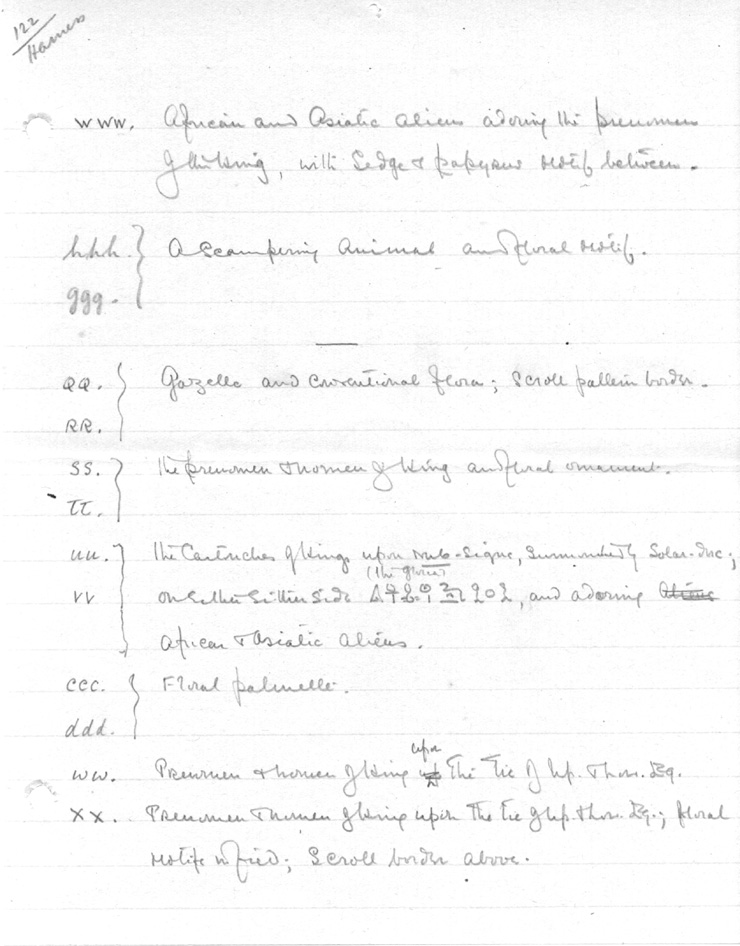 122
Harness
www. African and Asiatic aliens adoring the prenomen
of the king, with Sedge & papyrus motif between.
hhh. } A scampering animal and floral motif.
ggg.
QQ. } Gazelle and conventional flora; scroll pattern border.
RR.
SS. } The prenomen & nomen of king and floral ornament.
TT.
uu. } The Cartouches of kings upon nub-signs, surmounted by Solar-disc;
(the glories)
vv on either side and adoring
African & Asiatic aliens.
ccc. } Floral palmette.
ddd.
upon
ww. Prenomen & nomen of king The Tie of Up. & Low. Eg.
xx. Prenomen & nomen of king upon The Tie of Up. & Low. Eg.; floral
motifs ; Scroll border above.